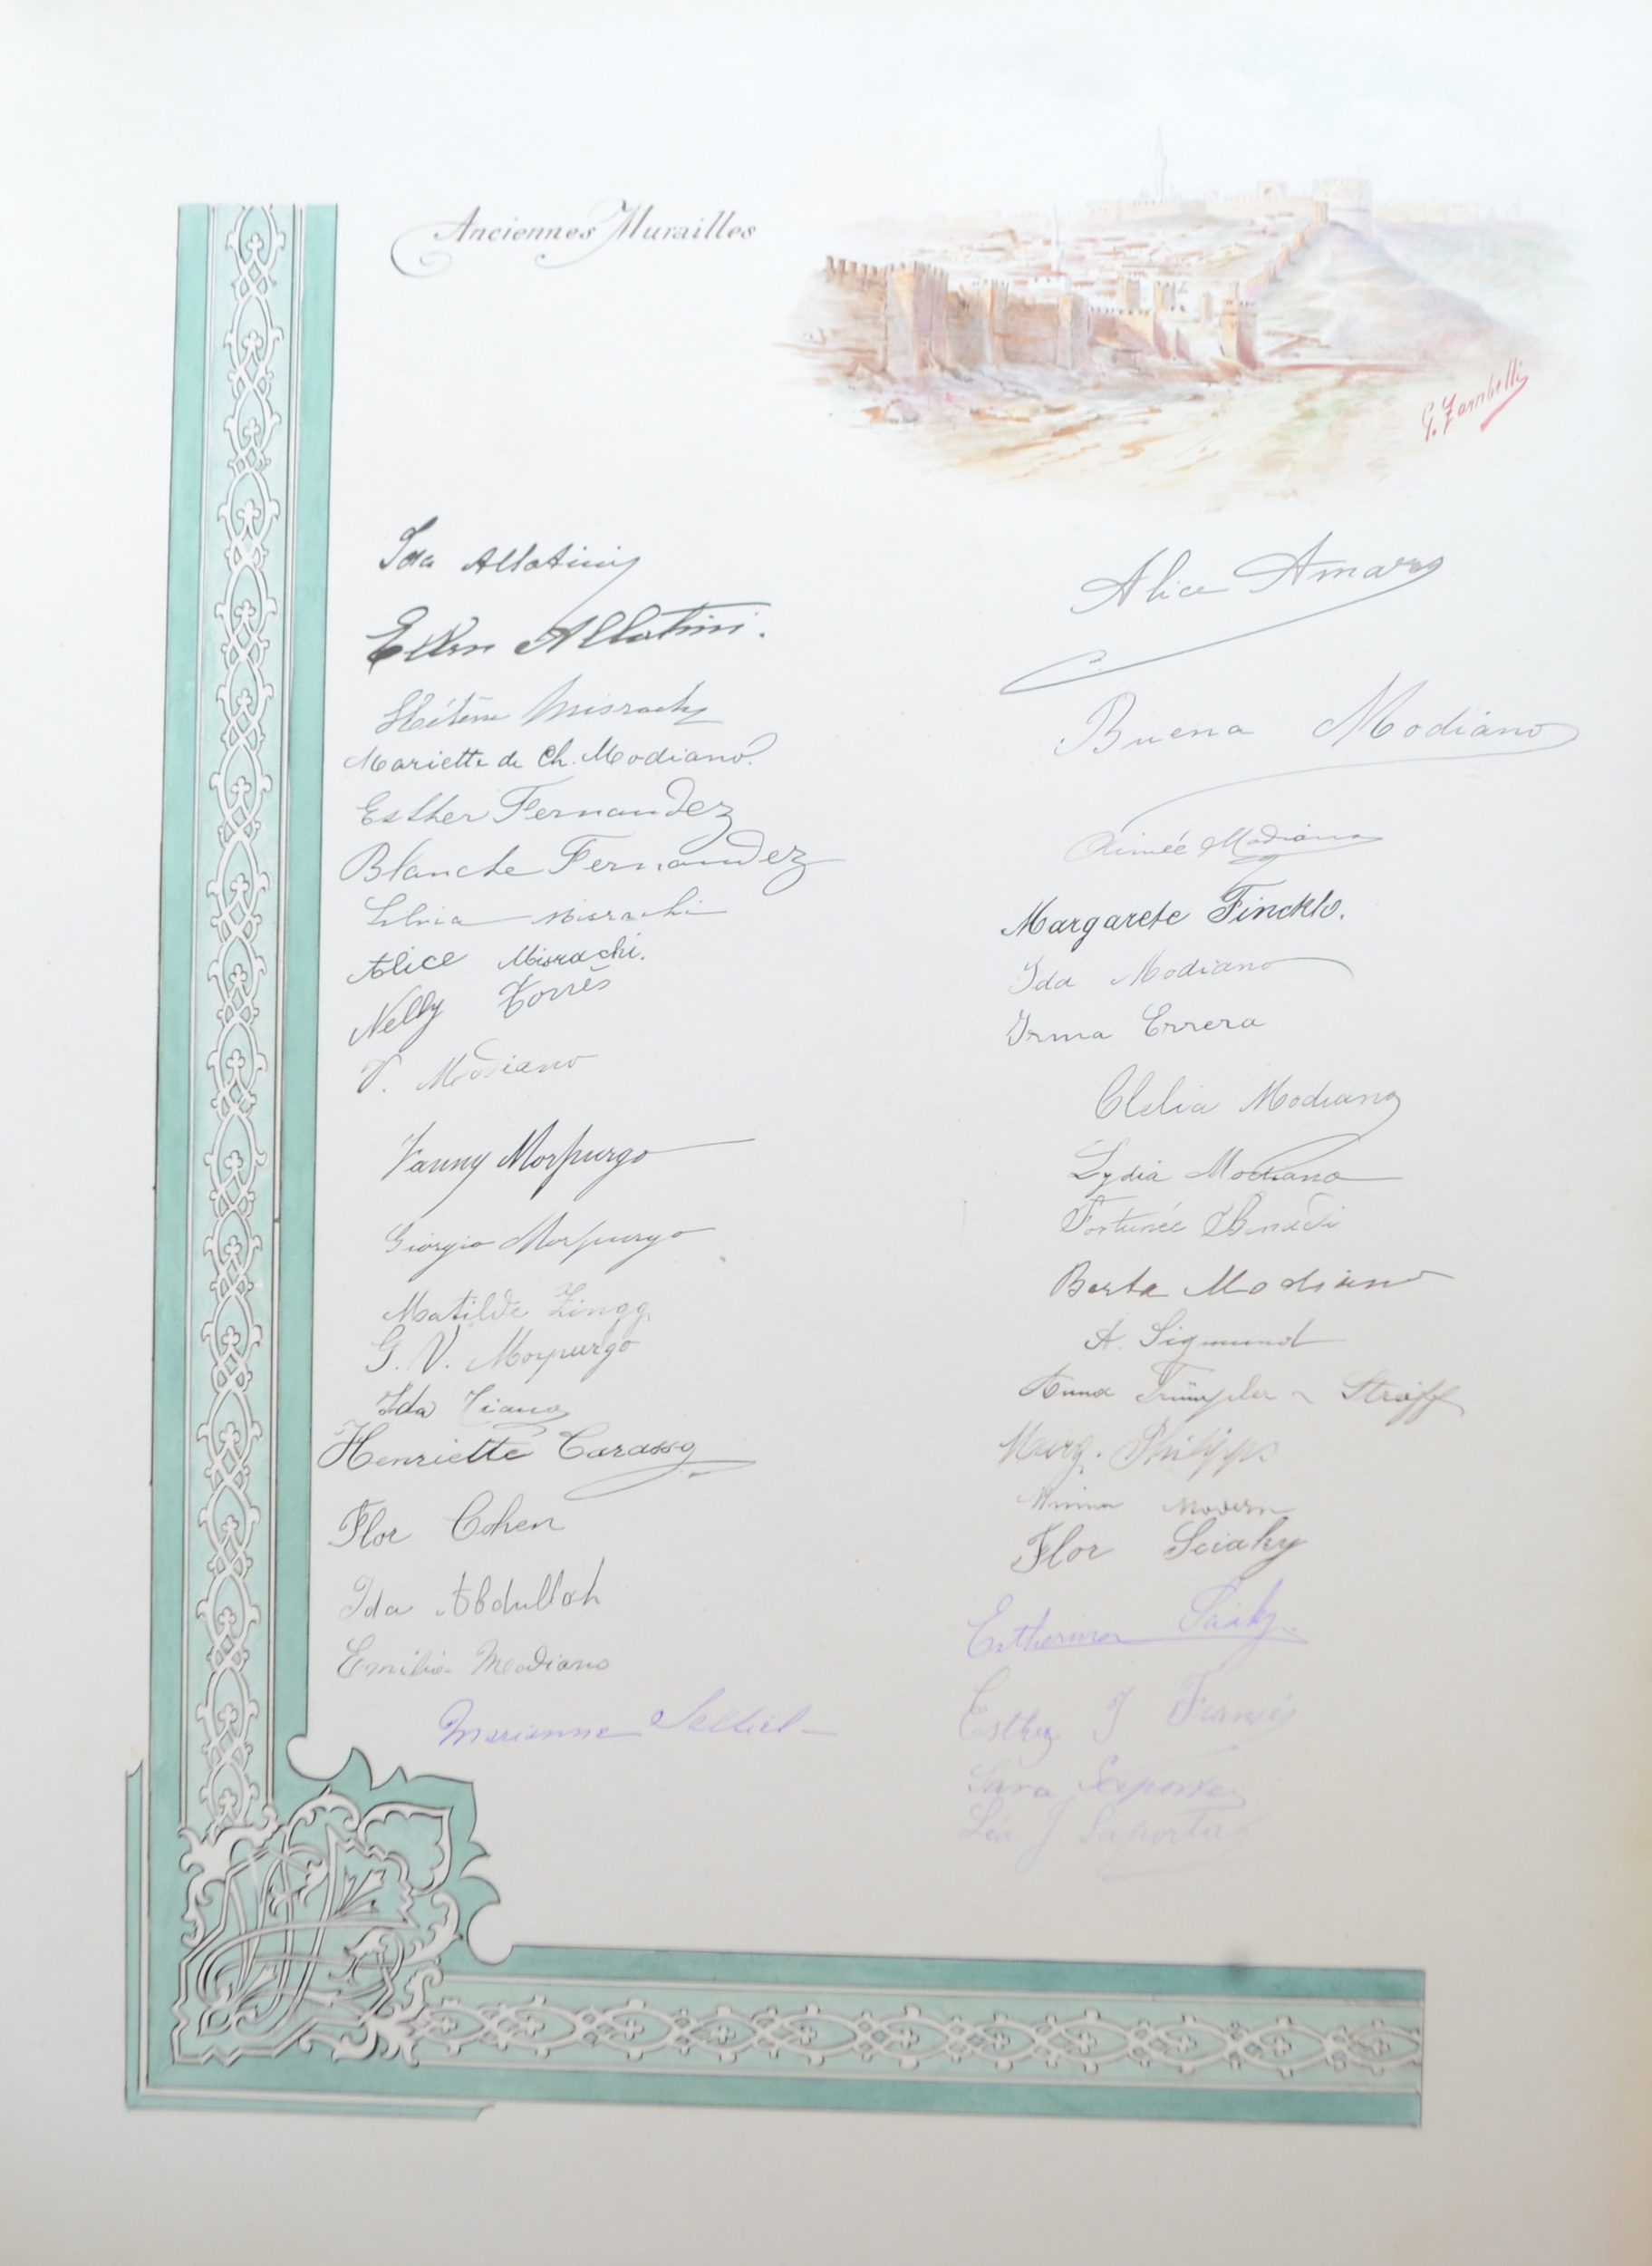 Anciennes Murailles
G. Zambelli
Ida Allatini
Ellen Allatini.
Hélène Misrachi
Mariette de Ch. Modiano
Esther Fernandez
Blanche Fernandez
Silvia Misrachi
Alice Misrachi.
Nelly Torrès
V. Modiano
Fanny Morpurgo
Giorgio Morpurgo
Matilde Zingg
G. V. Morpurgo
Ida Tiano
Henriette Carasso
Flor Cohen
Ida Abdullah
Emilie Modiano
Marianne Saltiel
Alice Amar
Buena Modiano
Aimée Modiano
Margarete
Ida Modiano
Irma Errera
Clelia Modiano
Lydia Modiano
Fortunée
Berta Modiano
A. Sigmund
Anna Trümpler - Straff
Marg. Philipps
Flor Sciaky
Sciaky
Esther J Francés
Sara Saporta
Léa J Saporta